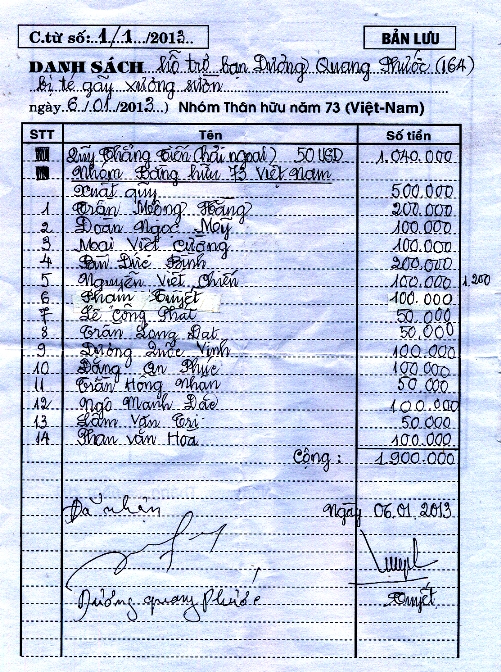 C.từ số: 1/1 /2013
BẢN LƯU
DANH SÁCH hỗ trợ bạn Dương Quang Phước (16A)
bị té gãy xương sườn
ngày 6/01/2013) Nhóm Thân hữu năm 73 (Việt-Nam)
STT Tên Số tiền
Quỹ Thắng Tiến (hải ngoại) 50USD 1.040.000
Nhóm Bằng hữu 73 Việt Nam
Xuất quỹ 500.000
1 Trần Mộng Hằng 200.000
2 Đoàn Ngọc Mỹ 100.000
3 Mai Viết Cường 100.000
4 Bùi Đức Bình 200.000
5 Nguyễn Viết Chiến 100.000 1,200
6 Phạm Tuyết 100.000
7 Lê Công Phát 50.000
8 Trần Long Đạt 50.000
9 Dương Quốc Vinh 100.000
10 Đặng An Phục 100.000
11 Trần Hồng Nhạn 50.000
12 Ngô Mạnh Đắc 100.000
13 Lâm Văn Trí 50.000
14 Phan Văn Hoà 100.000
Cộng : 1.900.000
Đã nhận Ngày 06.01.2013
Dương quang Phước Tuyết